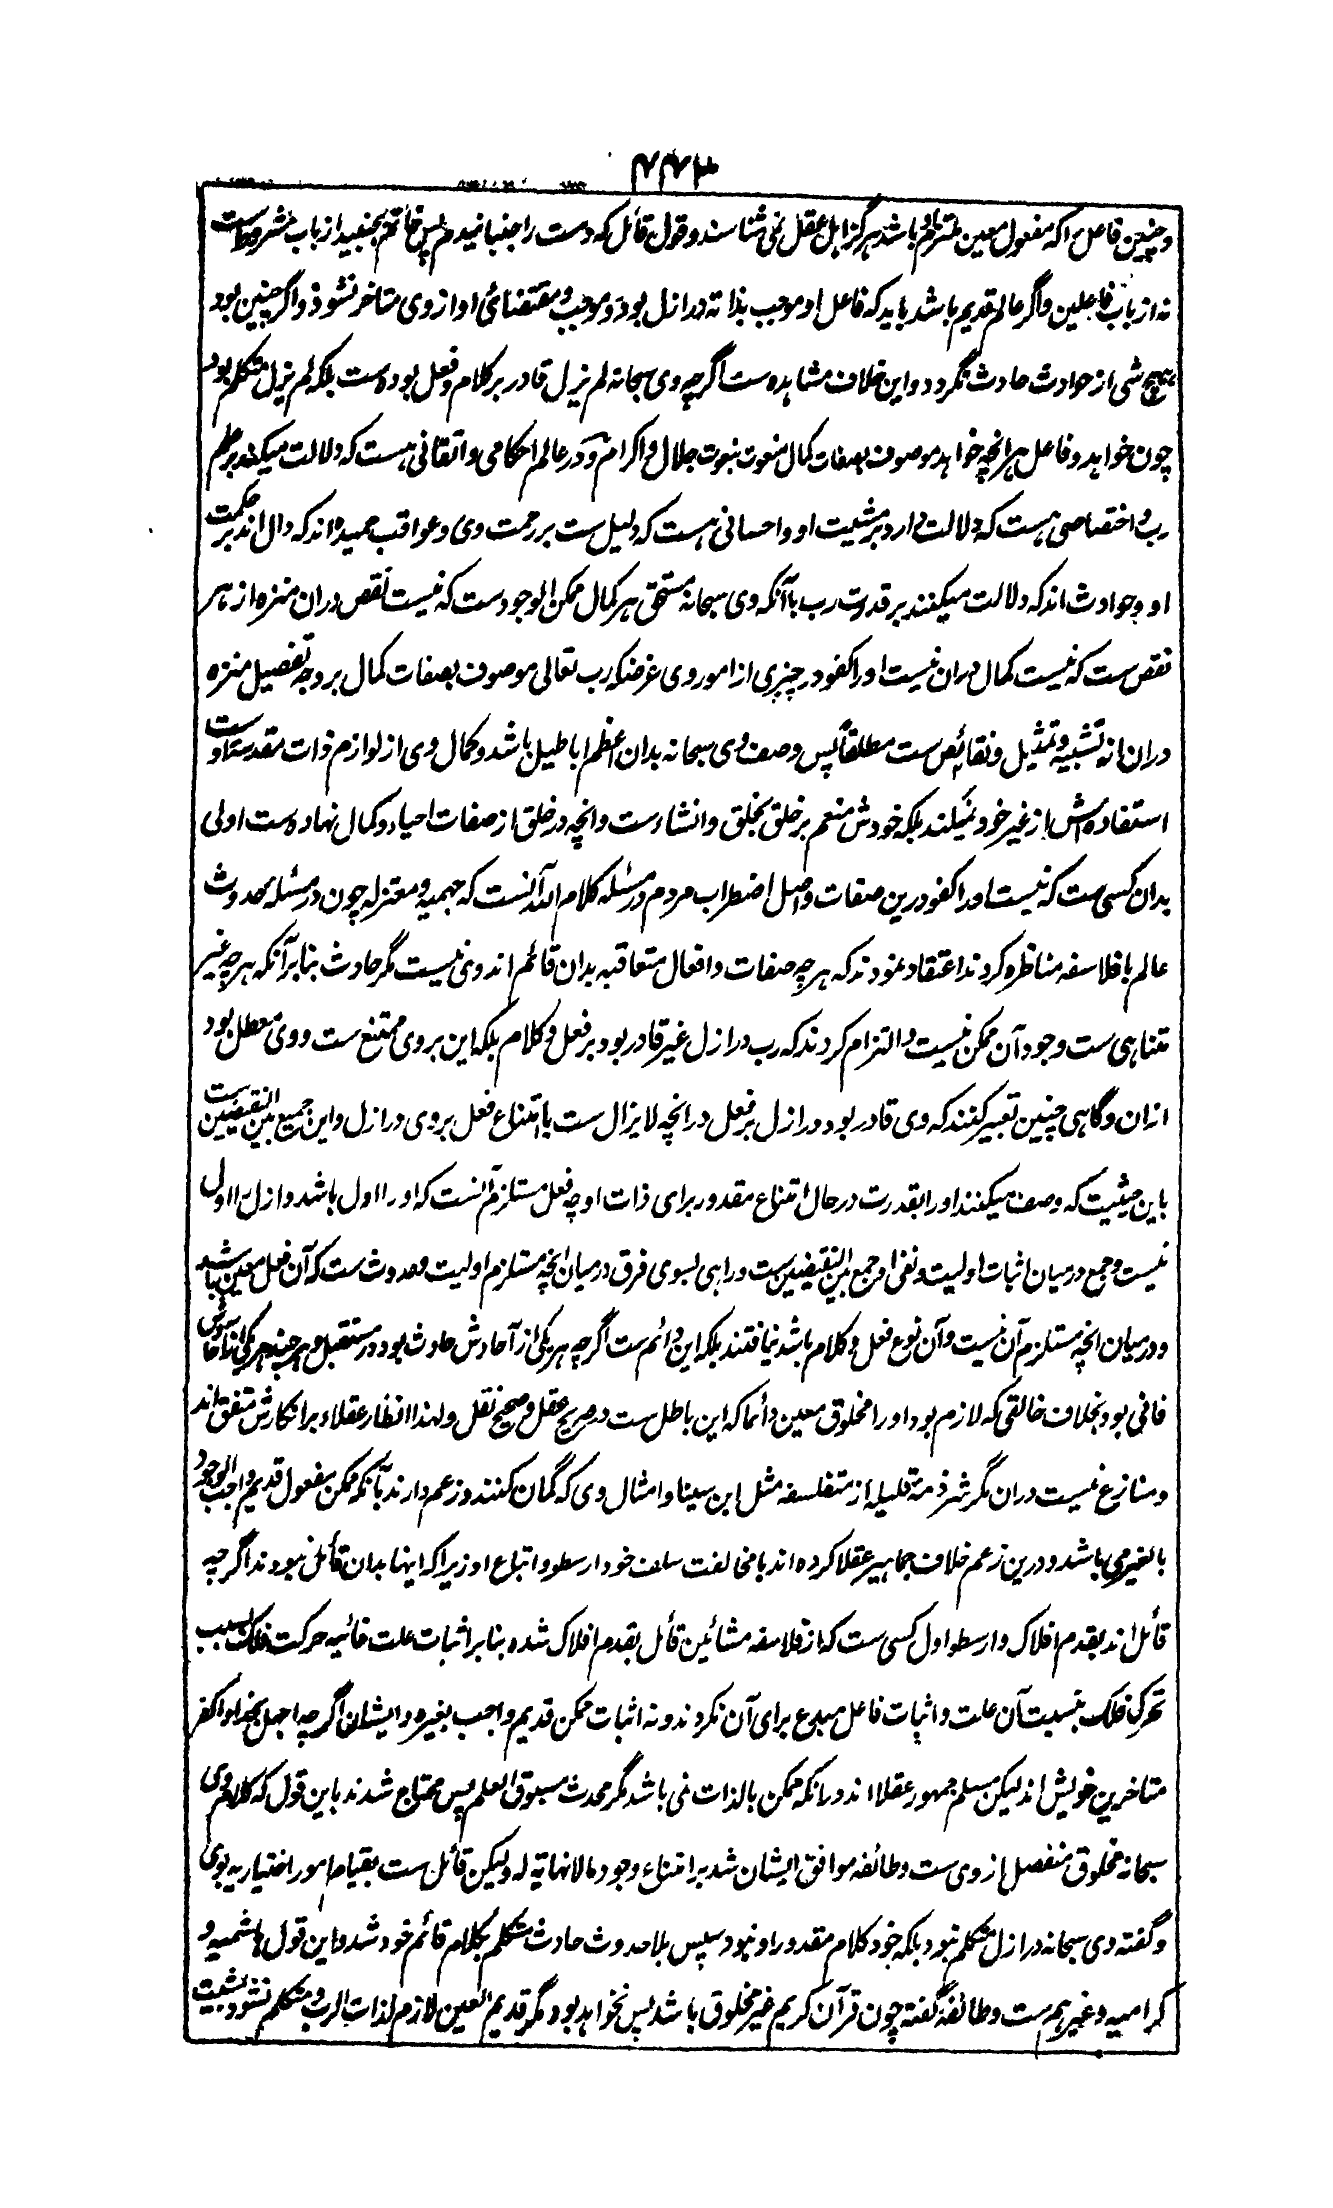 ۴۴۳
وچنین فاعل را که مفعول معین ملتزم باشد هرگز اهل عقل نمی شناسند و قول قائل که دست را جنبانیدم پس خاتم بجنبید از باب مشروطست
نه از باب فاعلین واگر عالم قدیم باشد باید که فاعل او موجب بذاته در ازل بود و موجب و مقتضائ او از وی متاخر نشود واگر چنین بود
هیچ شی از حوادث حادث نگردد و این خلاف مشاهده ست اگرچه وی سبحانه لم یزل قادر بر کلام و فعل بوده ست بلکه لم یزل متکلم بود
چون خواهد و فاعل هرانچه خواهد موصوف بصفات کمال منعوت بنعوت جلال و اکرام و در عالم احکامی و اتقانی هست که دلالت میکند بر علم
رب و اختصاصی هست که دلالت دارد بر مشیت او و احسانی هست که دلیل ست بر رحمت وی و عواقب حمیده اند که دال اند بر حکمت
او و حوادث اند که دلالت میکنند بر قدرت رب با آنکه وی سبحانه مستحق هر کمال ممکن الوجود ست که نیست نقص دران منزه از هر
نقص ست که نیست کمال دران نیست او را کفو در چیزی از امور وی غرضکه رب تعالی موصوف بصفات کمال بر وجه تفصیل منزه
دران از تشبیه و تمثیل و نقائص ست مطلقاً پس وصف وی سبحانه بدان اعظم اباطیل باشد و کمال وی از لوازم ذات مقدسه اوست
استفاده اش از غیر خود نمیکند بلکه خودش منعم بر خلق بخلق و انشاء ست و انچه در خلق از صفات احیاء و کمال نهاده ست اولی
بدان کسی ست که نیست او را کفو درین صفات و اصل اضطراب مردم در مسئله کلام الله آنست که جهمیه و معتزله چون در مسئله حدوث
عالم با فلاسفه مناظره کردند اعتقاد نمودند که هرچه صفات و افعال متعاقبه بدان قائم اند وی نیست مگر حادث بنابر آنکه هرچه غیر
متناهی ست وجود آن ممکن نیست و التزام کردند که رب در ازل غیر قادر بود بر فعل و کلام بلکه این بر وی ممتنع ست و وی معطل بود
ازان و گاهی چنین تعبیر کنند که وی قادر بود در ازل بر فعل در انچه لا یزال ست با امتناع فعل بر وی در ازل و این جمع بین النقیضین ست
باین حیثیت که وصف میکنند او را بقدرت در حال امتناع مقدور برای ذات او چه فعل مستلزم آنست که او را اول باشد و ازل را اول
نیست و جمع درمیان اثبات اولیت و نفی او جمع بین النقیضین ست و راهی بسوی فرق درمیان انچه مستلزم اولیت و حدوث ست که آن فعل معین باشد
و درمیان انچه مستلزم آن نیست و آن نوع فعل و کلام باشد نیافتند بلکه این دائم ست اگرچه هر یکی از آحادش حادث بود در مستقبل
فانی بود بخلاف خالقی که لازم بود او را مخلوق معین دائما که این باطل ست در صریح عقل و صحیح نقل و لهذا انظار عقلاء بر انکارش متفق اند
و منازع نیست دران مگر شرذمه قلیله از متفلسفه مثل ابن سینا و امثال وی که گمان کنند و زعم دارند بآنکه ممکن مفعول قدیم واجب الوجود
بالغیر می باشد و درین زعم خلاف جماهیر عقلا کرده اند با مخالفت سلف خود ارسطو و اتباع او زیرا که اینها بدان قائل نبودند اگرچه
قائل اند بقدم افلاک و ارسطو اول کسی ست که از فلاسفه مشائین قائل بقدم افلاک شده بنابر اثبات علت غائیه حرکت فلک بسبب
تحرک فلک بنسبت آن علت و اثبات فاعل مبدع برای آن نکردند و نه اثبات ممکن قدیم واجب بغیره و ایشان اگرچه اجهل بخدا و اکفر
متاخرین خویش اند لیکن مسلم جمهور عقلا اند در انکه ممکن بالذات نمی باشد مگر محدث مسبوق العلم پس محتاج شدند باین قول که کلام وی
سبحانه مخلوق منفصل از وی ست و طائفه موافق ایشان شد بر امتناع وجود ما لا نهایة له و لیکن قائل ست بقیام امور اختیاریه بوی
و گفته وی سبحانه در ازل متکلم نبود بلکه خود کلام مقدور او نبود سپس بلا حدوث حادث متکلم بکلام قائم خود شد و این قول هاشمیه و
کرامیه و غیرهم ست و طائفه گفته چون قرآن کریم غیر مخلوق باشد پس نخواهد بود مگر قدیم العین لازم لذات الرب و متکلم نشود بمشیت